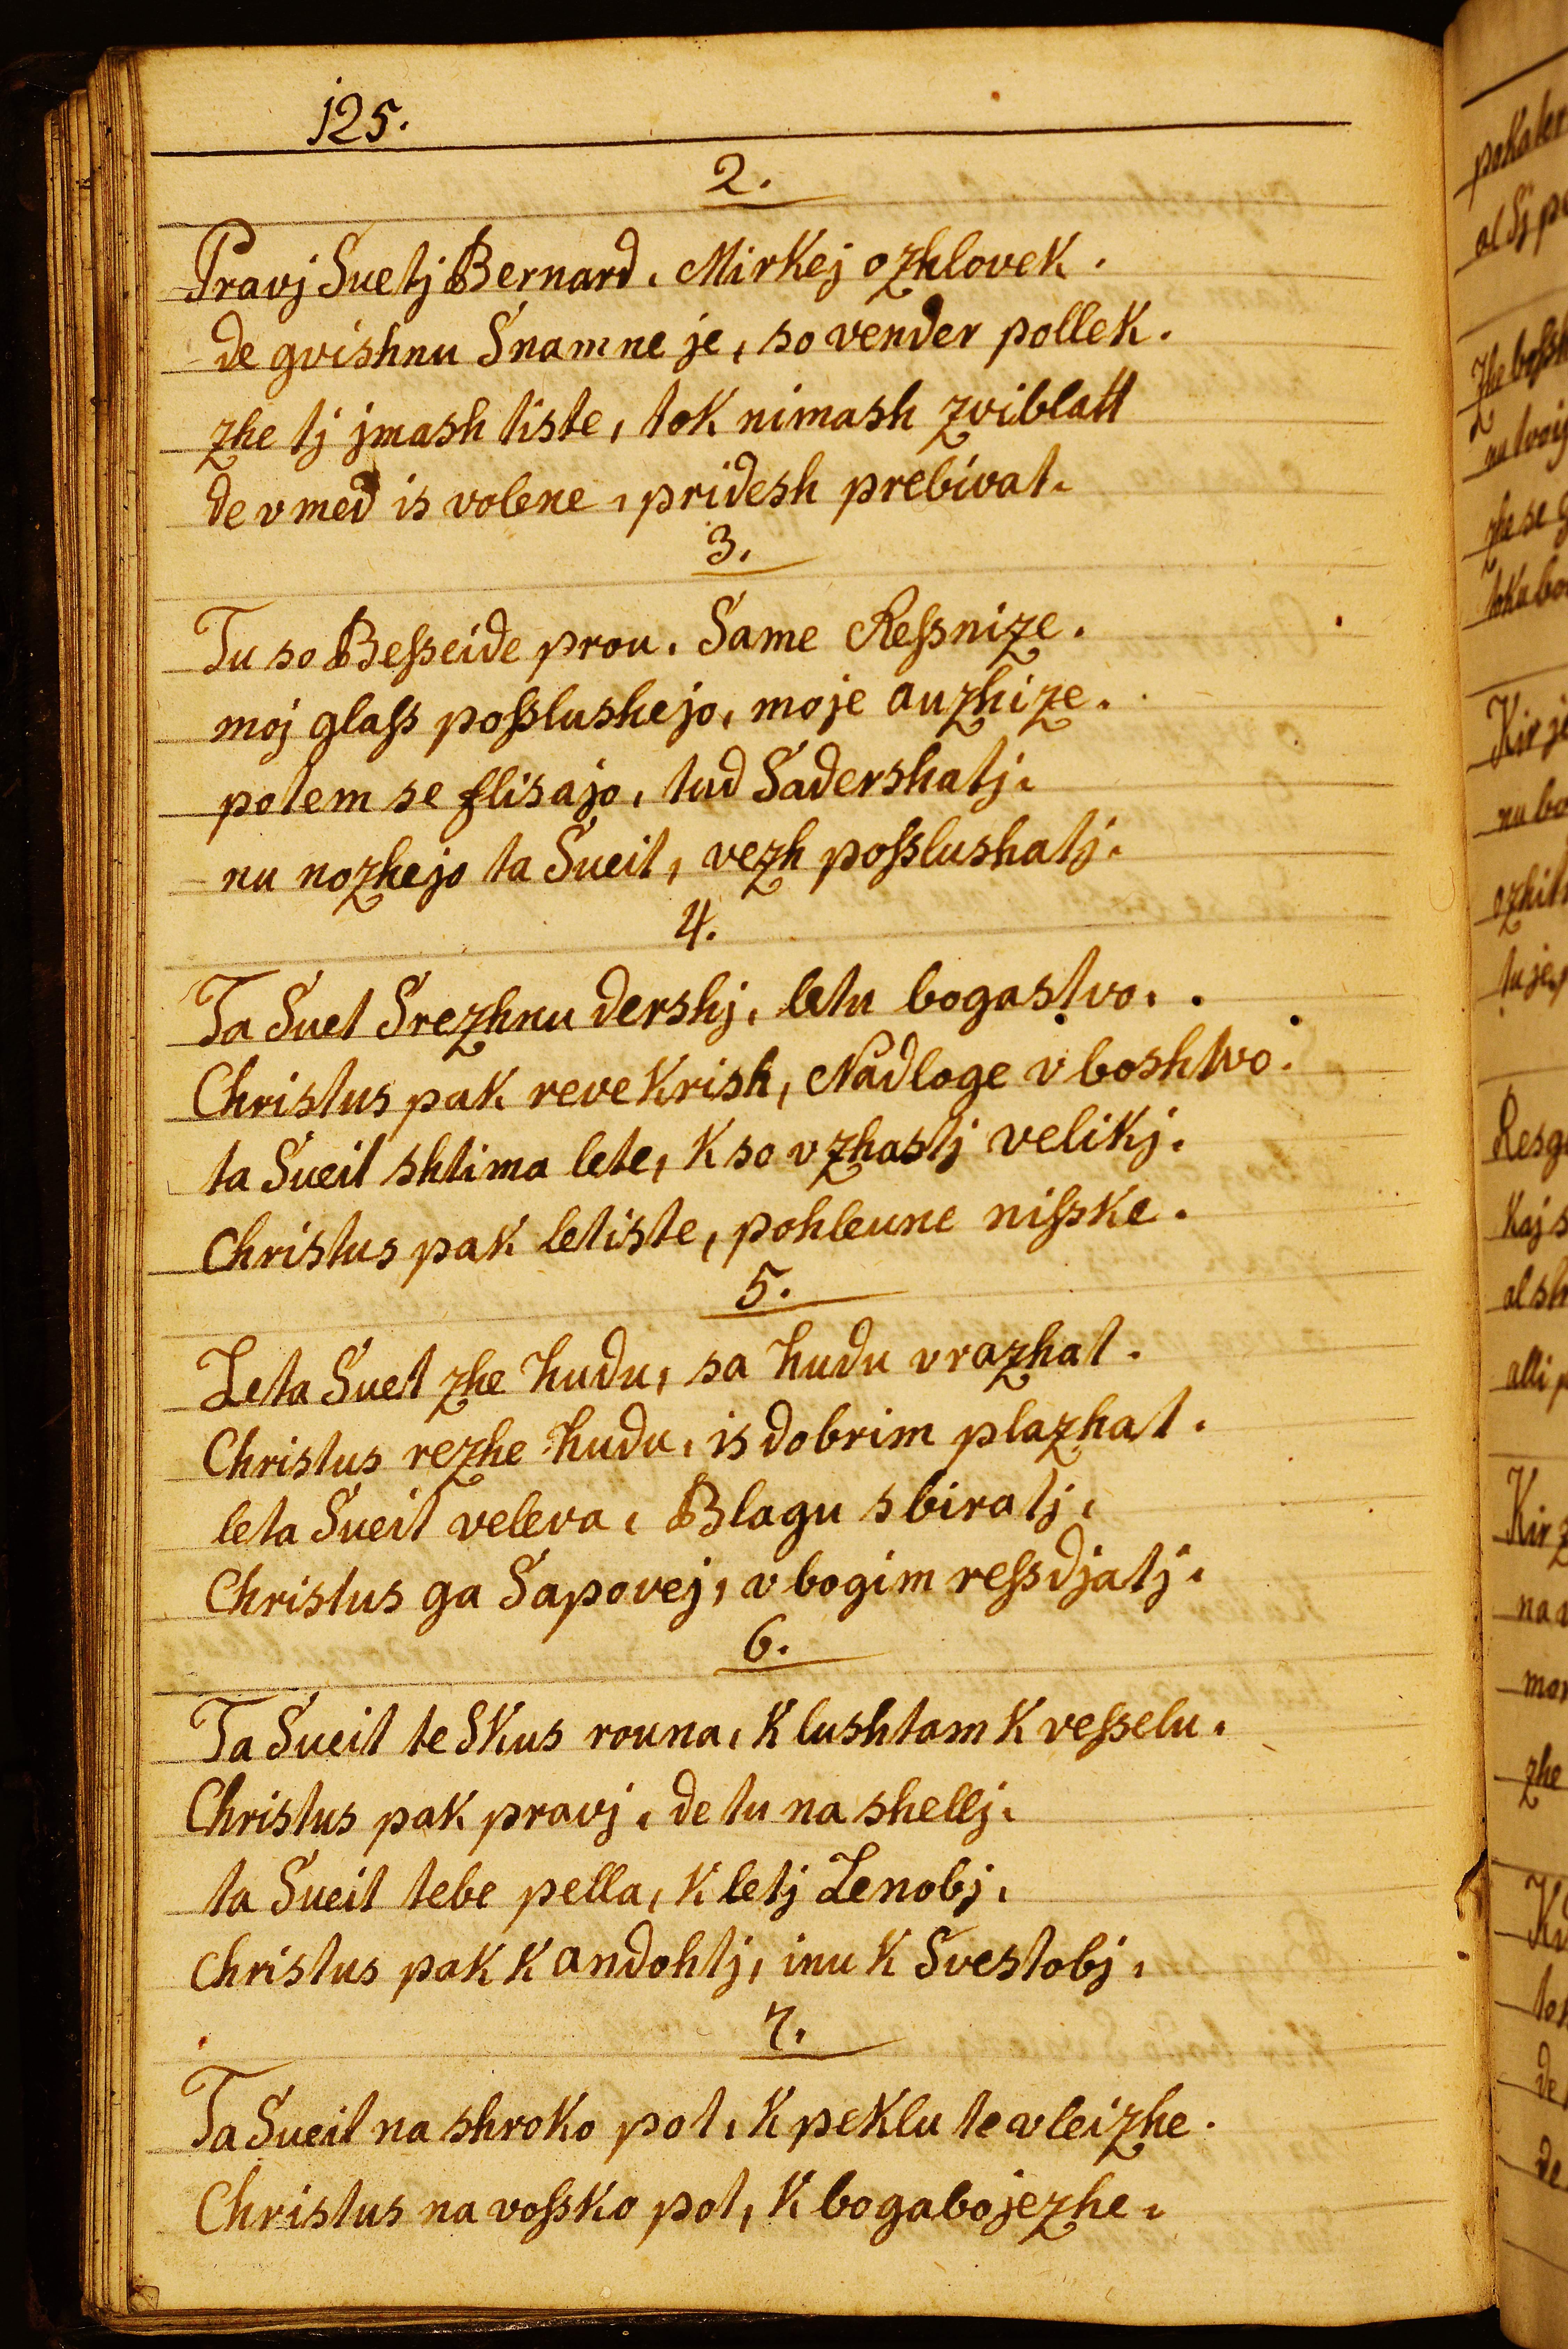 125.
2.
Pravj Svetj Bernard. Mirkej ozhlovek.
de gvishnu Snam ne je, so vender pollek.
zhe tj jmash tiste, tok nimash zviblatt
de v med is volene, pridesh prebivat.
3.
Tu so Beſseide prou. Same Reſsnize.
moj glaſs poſslushejo, moje auzhize.
potem se flisajo, tud Sadershatj.
nu nozhejo ta Sueit, vezh poſslushatj.
4.
Ta Suet Srezhnu dershj, letu bogastvo.
Christus pak reve Krish, Nadloge vboshtvo.
ta Sueit shtima lete, K so v zhastj velikj.
Christus pak letiste, pohleune niſske.
5.
Leta Suet zhe hudu, sa hudu vrazhat.
Christus rezhe hudu, is dobrim plazhat.
leta Sueit veleva, Blagu sbiratj,
Christus ga Sapovej, vbogim reſsdjatj.
6.
Ta Sueit te Skus rouna, K lushtam K veſselu.
Christus pak pravj, de tu na shellj.
ta Sueit tebe pella, K letj Lenobj,
Christus pak K andohtj, inu K Svestobj,
7.
Ta Sueit na shroko pot, K peklu te vleizhe.
Christus na voſsko pot, K bogabojezhe.